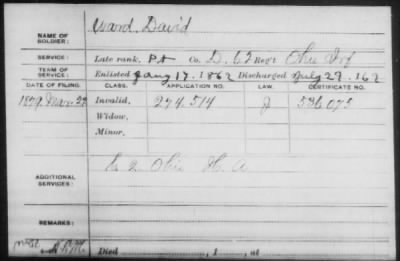 NAME OF SOLDIER: Ward, David
SERVICE: Late rank, Pt Co. D, 62 Reg't Ohio Inf
TERM OF SERVICE: Enlisted Jany 17, 1862 Discharged July 29, 186
DATE OF FILING. CLASS. APPLICATION NO. LAW. CERTIFICATE NO.
1879 Mar 22 Invalid, 274.514 J 536075
Widow,
Minor,
ADDITIONAL SERVICES: E 2 Ohio H. A
REMARKS:
Died , 1 , at